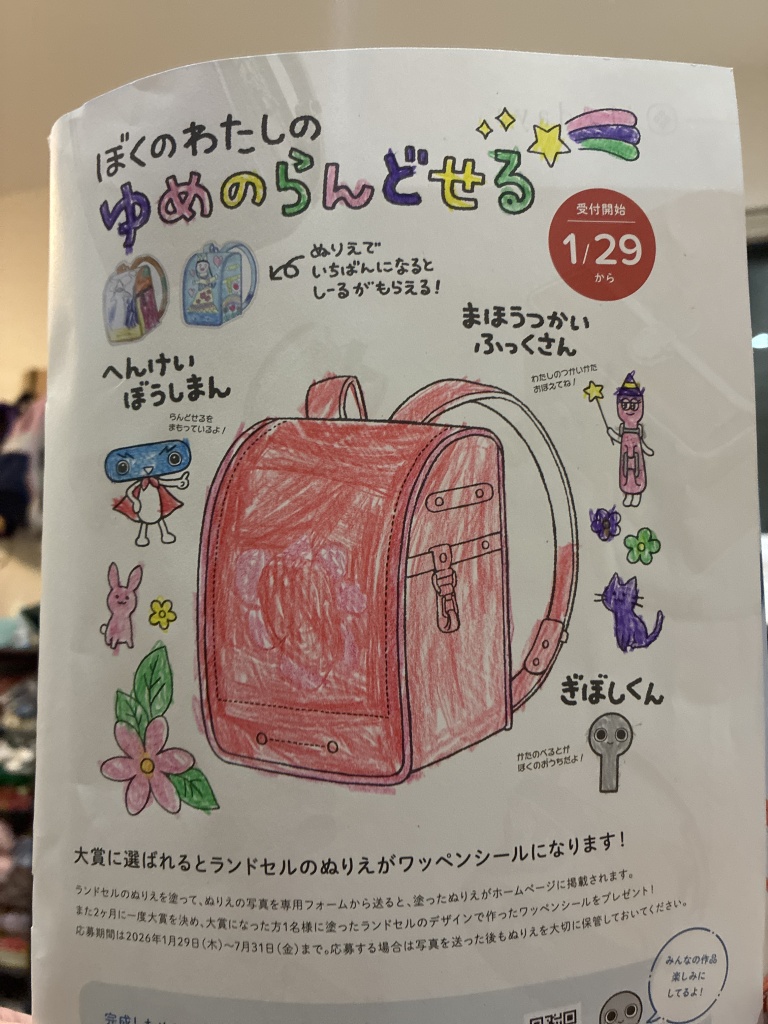 ぼくのわたしの
ゆめのらんどせる
受付開始
1/29
から
ぬりえで
いちばんになると
しーるがもらえる!
まほうつかい
ふっくさん
わたしのつかいかた
おぼえてね!
へんけい
ぼうしまん
らんどせるを
まもっているよ!
ぎぼしくん
かたのべるとが
ぼくのおうちだよ!
大賞に選ばれるとランドセルのぬりえがワッペンシールになります!
ランドセルのぬりえを塗って、ぬりえの写真を専用フォームから送ると、塗ったぬりえがホームページに掲載されます。
また2ヶ月に一度大賞を決め、大賞になった方1名様に塗ったランドセルのデザインで作ったワッペンシールをプレゼント!
応募期間は2026年1月29日(木)〜7月31日(金)まで。応募する場合は写真を送った後もぬりえを大切に保管しておいてください。
みんなの作品
楽しみに
してるよ!